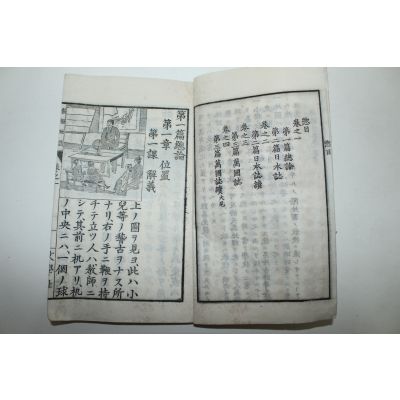 總目
卷之一
第一篇總論
第二篇日本誌
卷之二
第二篇日本誌續
卷之三
第三篇萬國誌
卷之四
第三篇萬國誌續大尾
第一篇總論
第一章 位置
第一課 解義
上ノ圖ヲ見ヨ此ハ小
兒等ノ稽古ヲナス所
ナリ右ノ手ニ鞭ヲ持
チテ立ツ人ハ敎師ニ
シテ其前ニ机アリ机
ノ中央ニハ一個ノ球